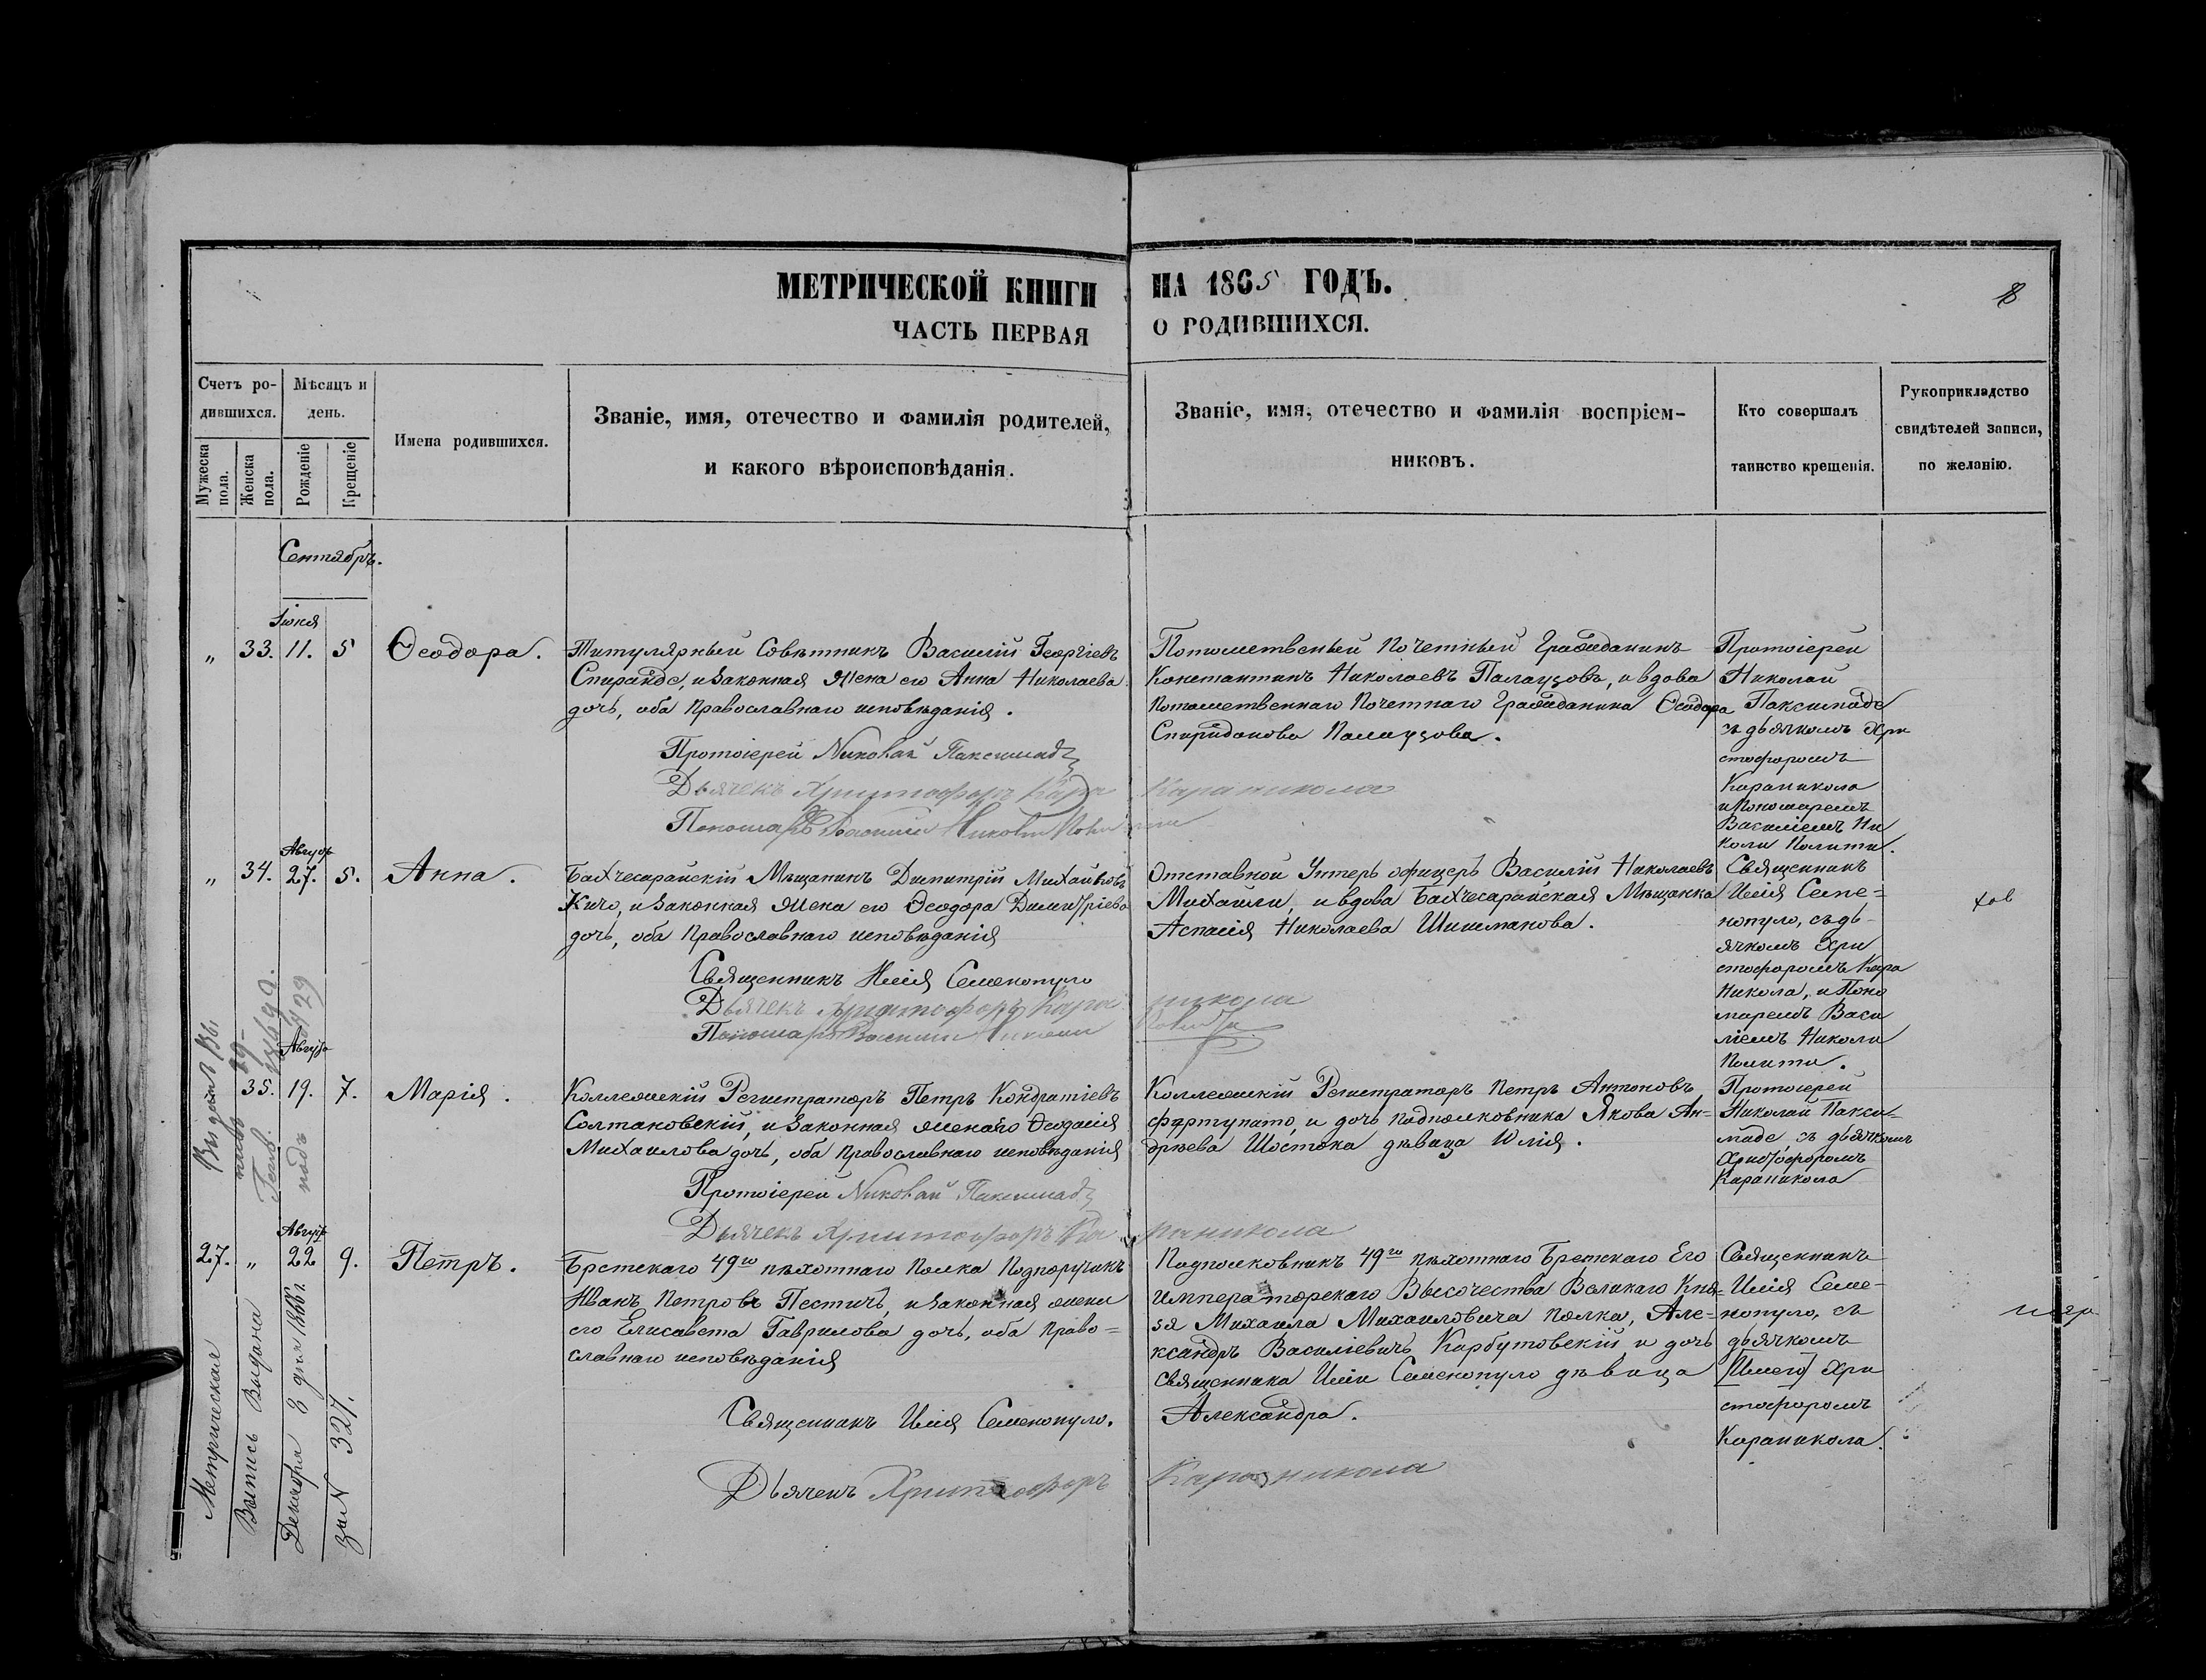 МЕТРИЧЕСКОЙ КНИГИ НА 1865 ГОДЪ.
8
ЧАСТЬ ПЕРВАЯ О РОДИВШИХСЯ.
Счетъ ро-
дившихся.
Мужеска
пола.
Женска
пола.
Мѣсяцъ и
день.
Рожденіе
Крещеніе
Имена родившихся.
Званіе, имя, отечество и фамилія родителей,
и какого вѣроисповѣданія.
Званіе, имя, отечество и фамилія воспріем-
никовъ.
Кто совершалъ
таинство крещенія.
Рукоприкладство
свидѣтелей записи,
по желанію.
Сентябрь.
Іюня
„ 33. 11. 5 Ѳеодора.
Титулярный Совѣтникъ Василій Георгіевъ
Спиранде, и законная жена его Анна Николаева
дочь, оба православнаго исповѣданія.
Протоіерей Николай Паксимаде
Дьячекъ Христофоръ Кара Караникола
Пономарь Василій Николи Полити
Потомственный Почетный Гражданинъ
Константинъ Николаевъ Палаузовъ, и вдова
потомственнаго Почетнаго Гражданина Ѳеодора
Спиридонова Палаузова.
Протоіерей
Николай
Паксимаде
съ дьячкомъ Хри
стофоромъ
Караникола
и Пономаремъ
Василіемъ Ни
коли Полити.
Август
„ 34. 27. 5. Анна.
Бахчесарайскій Мѣщанинъ Димитрій Михайловъ
Кичо, и законная жена его Ѳеодора Димитріева
дочь, оба православнаго исповѣданія
Священникъ Илія Семенопуло
Дьячекъ Христофоръ Кара никола
Пономарь Василій Николи Полити
Отставной Унтеръ офицеръ Василій Николаевъ
Михайли, и вдова Бахчесарайская Мѣщанка
Аспасія Николаева Шишманова.
Священникъ
Илія Семе=
нопуло, съ дь-
ячкомъ Хри
стофоромъ Кара
Никола, и Поно
маремъ Васи
ліемъ Николи
Полити.
Августа
35. 19. 7. Марія.
Коллежскій Регистраторъ Петръ Кондратіевъ
Солтановскій, и законная жена его Ѳеодосія
Михаилова дочь, оба православнаго исповѣданія
Протоіерей Николай Паксимаде
Дьячекъ Христофоръ Ка раникола
Коллежскій Регистраторъ Петръ Антоновъ
Фортунато, и дочь подполковника Якова Ан=
дреева Шостока дѣвица Юлія.
Протоіерей
Николай Пакси-
маде, съ дьячкомъ
Христофоромъ
Караникола
Август
27. „ 22 9. Петръ.
Брестскаго 49го пѣхотнаго полка Подпоручикъ
Иванъ Петровъ Пестичъ, и законная жена
его Елисавета Гаврилова дочь, оба право=
славнаго исповѣданія
Священникъ Илія Семенопуло.
Дьячекъ Христофоръ Караникола
Подполковникъ 49го пѣхотнаго Брестскаго Его
Императорскаго Высочества Великаго Кня=
зя Михаила Михаиловича полка, Але=
ксандръ Василіевичъ Карбутовскій и дочь
священника Иліи Семенопуло дѣвица
Александра.
Священникъ
Илія Семе-
нопуло, съ
дьячкомъ
Хри
стофоромъ
Караникола.
Метрическая
Выпись Выдана
Декабря 3 дня 1866 г.
за N 327.